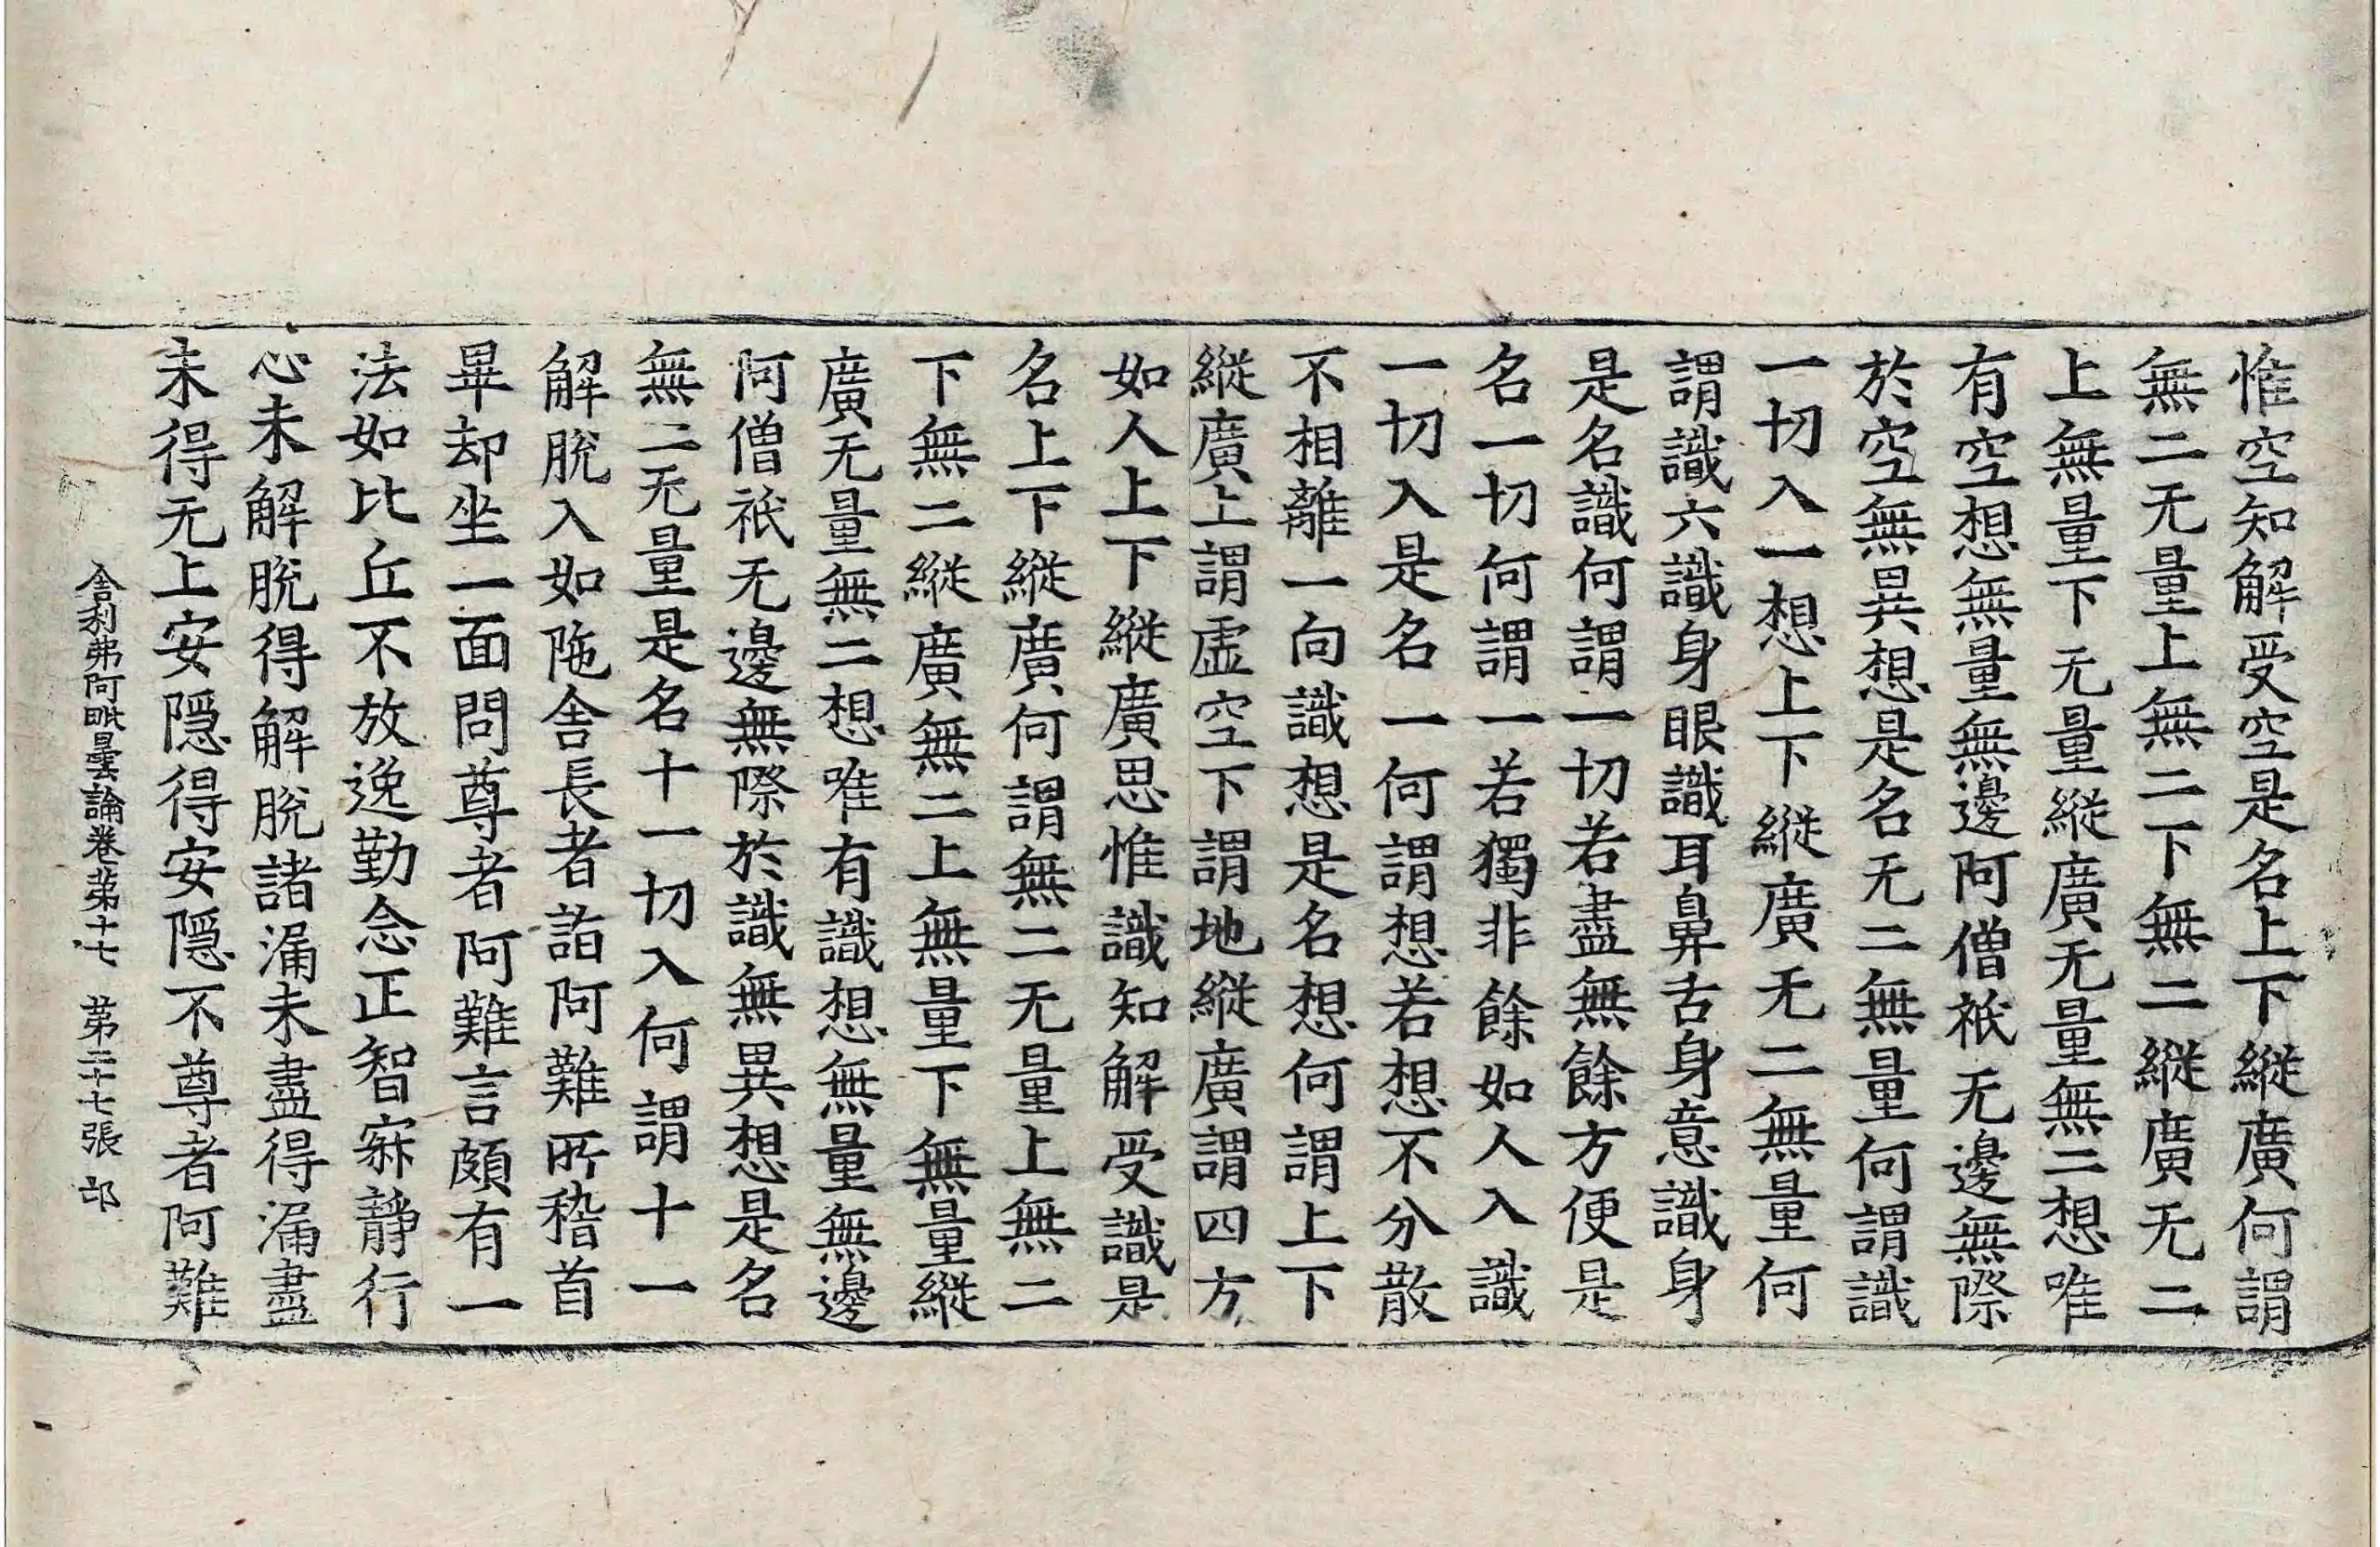 惟空知解受空是名上下縱廣何謂
無二无量上無二下無二縱廣无二
上無量下无量縱廣无量無二想唯
有空想無量無邊阿僧祇无邊無際
於空無異想是名无二無量何謂識
一切入一想上下縱廣无二無量何
謂識六識身眼識耳鼻舌身意識身
是名識何謂一切若盡無餘方便是
名一切何謂一若獨非餘如人入識
一切入是名一何謂想若想不分散
不相離一向識想是名想何謂上下
縱廣上謂虛空下謂地縱廣謂四方
如人上下縱廣思惟識知解受識是
名上下縱廣何謂無二无量上無二
下無二縱廣無二上無量下無量縱
廣无量無二想唯有識想無量無邊
阿僧祇无邊無際於識無異想是名
無二无量是名十一切入何謂十一
解脫入如陁舍長者詣阿難所稽首
畢却坐一面問尊者阿難言頗有一
法如比丘不放逸勤念正智寂靜行
心未解脫得解脫諸漏未盡得漏盡
未得无上安隱得安隱不尊者阿難
舍利弗阿毗曇論卷苐十七 苐二十七張